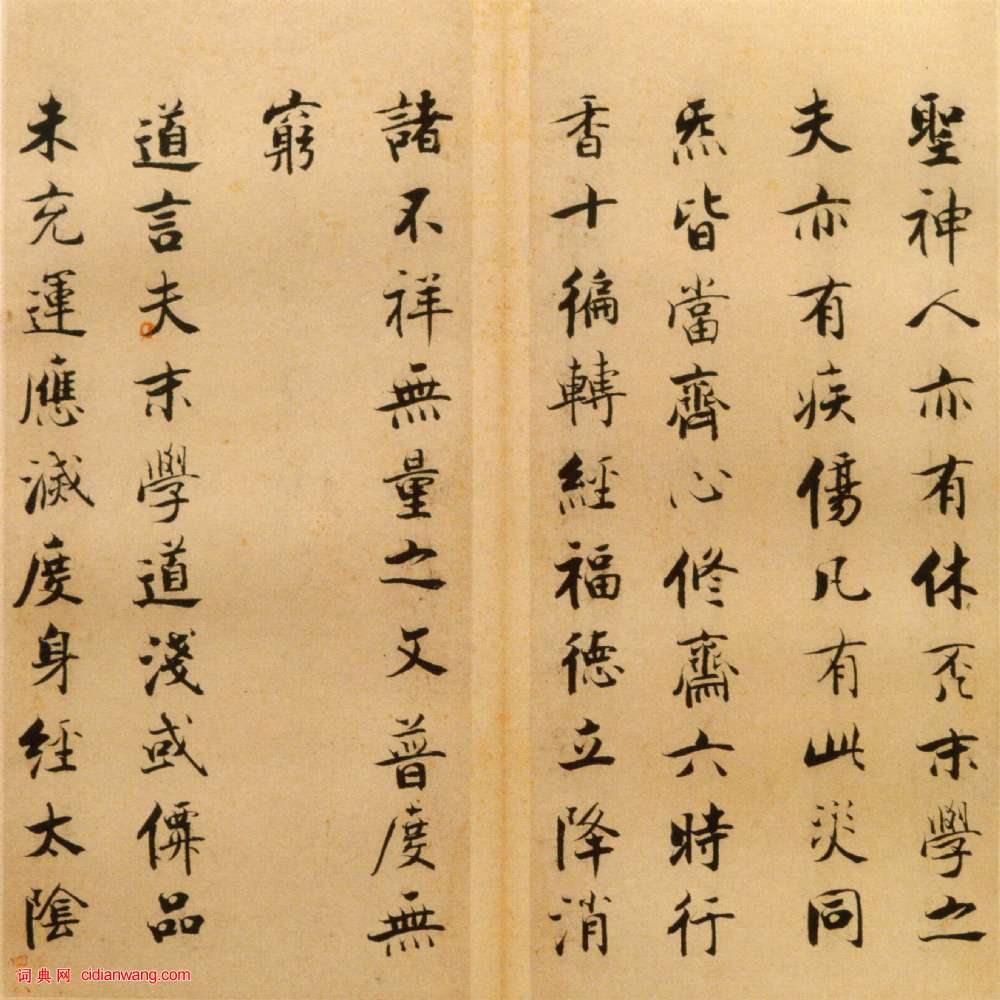 聖神人亦有休否末學之
夫亦有疾傷凡有此災同
炁皆當齊心修齋六時行
香十徧轉經福德立降消
諸不祥無量之文普度無
窮
道言夫末學道淺或僊品
未充運應滅度身經太陰
词典网 cidianwang.com